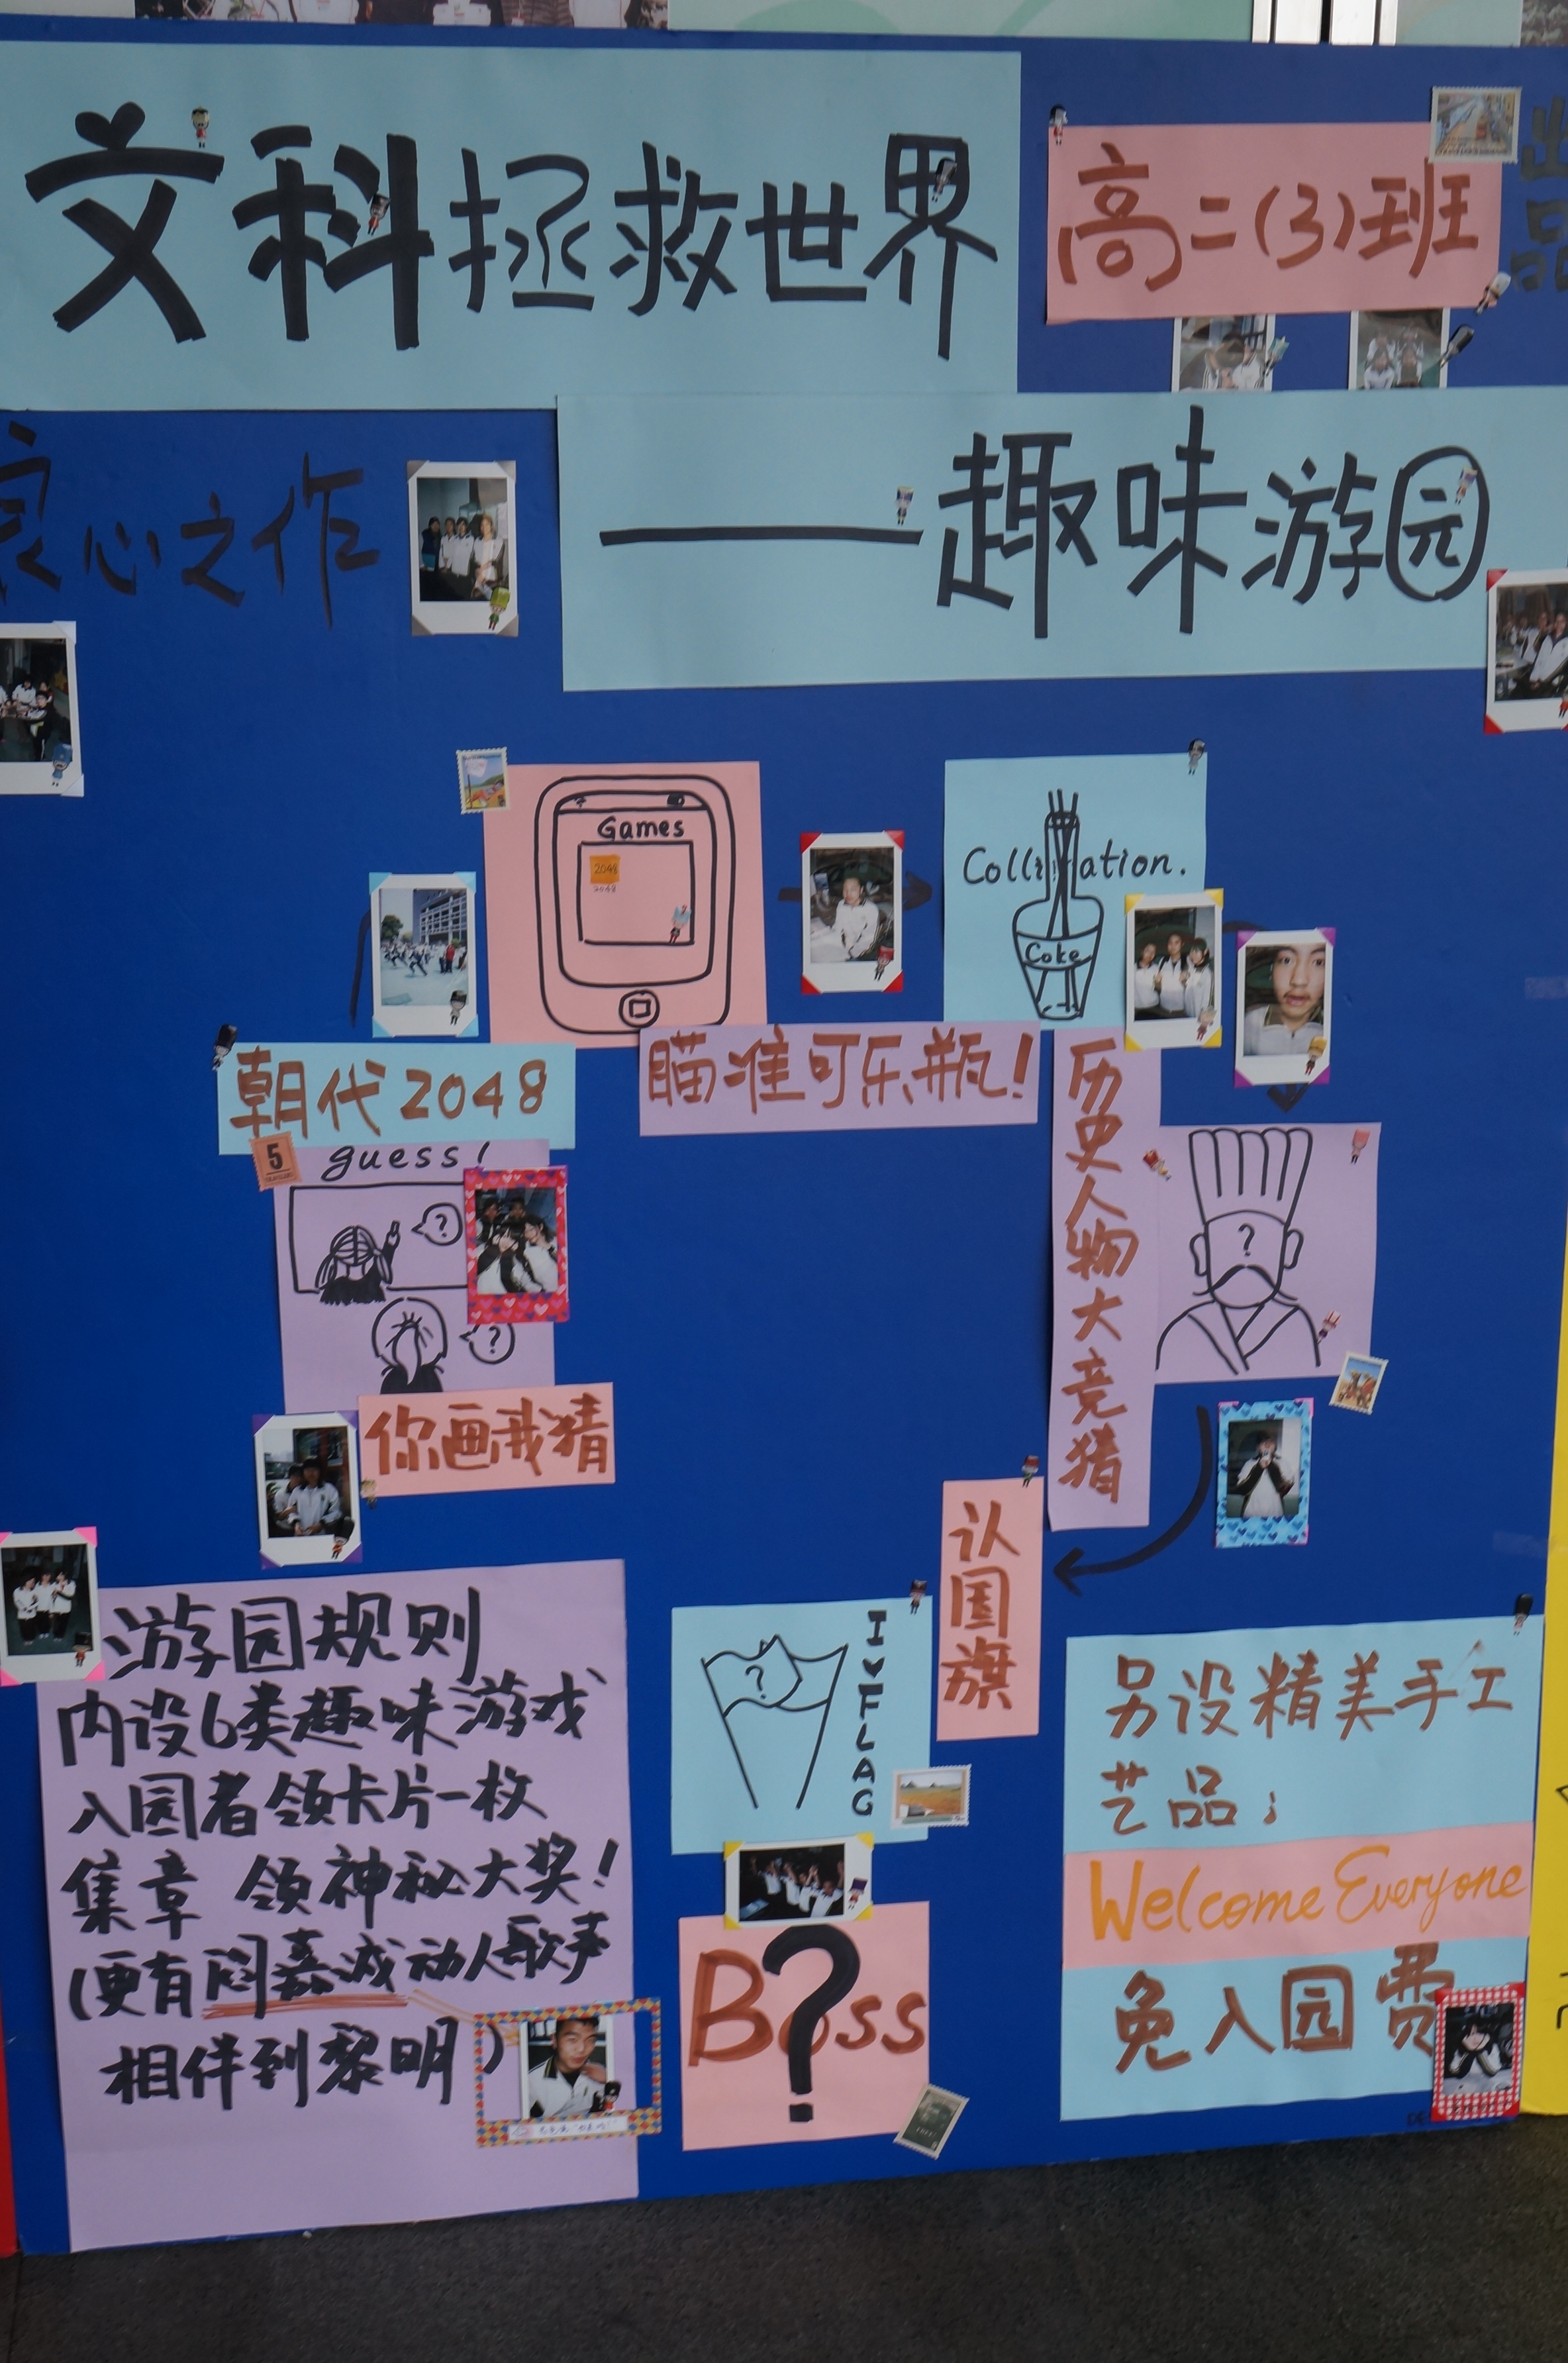 文科拯救世界
高二(3)班
出品
良心之作
——趣味游园
Games
2048
2048
Coke
朝代2048
瞄准可乐瓶!
历史人物大竞猜
guess!
?
?
?
5
你画我猜
认国旗
I♥FLAG
?
游园规则
内设6类趣味游戏
入园者领卡片一枚
集章 领神秘大奖!
(更有闷嘉诚动人歌声
相伴到黎明)
Boss
?
另设精美手工
艺品;
Welcome Everyone
免入园费